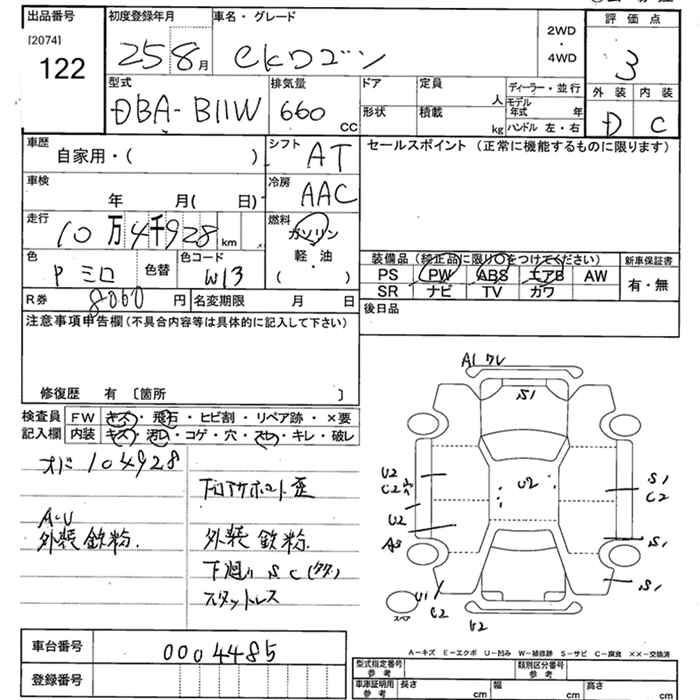 出品番号 初度登録年月 車名・グレード 評価点
[2074] 25 8月 ekワゴン 2WD・4WD 3
122
型式 排気量 ドア 定員 人 ディーラー・並行 外装 内装
DBA-B11W 660 CC 形状 積載 kg モデル年式 年 D C
ハンドル 左・右
車歴 シフト セールスポイント (正常に機能するものに限ります)
自家用・( ) AT
車検 冷房
年 月( 日) AAC
走行 燃料
10万4千928 km ガソリン
色 色替 色コード 軽・油 装備品 (純正品に限り○をつけてください) 新車保証書
Pミロ W13 ( ) PS PW ABS エアB AW 有・無
R券 8060 円 名変期限 月 日 SR ナビ TV カワ
注意事項申告欄(不具合内容等は具体的に記入して下さい) 後日品
修復歴 有 〔箇所 〕
検査員 FW キズ・飛石・ヒビ割・リペア跡・×要
記入欄 内装 キズ・汚レ・コゲ・穴・スレ・キレ・破レ
オド 104928
A-U
外装 鉄粉.
外装 鉄粉.
下廻り SC(タタ)
スタットレス
A1 ワレ
S1
U2
U2
C2
U2
A3
S1
C2
S1
S1
U1
C2
U2
スペア
A-キズ E-エクボ U-凹み W-補修跡 S-サビ C-腐食 ××-交換済
車台番号 0004485
登録番号
型式指定番号 参考 類別区分番号 参考
車庫証明用 参考 長さ cm 幅 cm 高さ cm